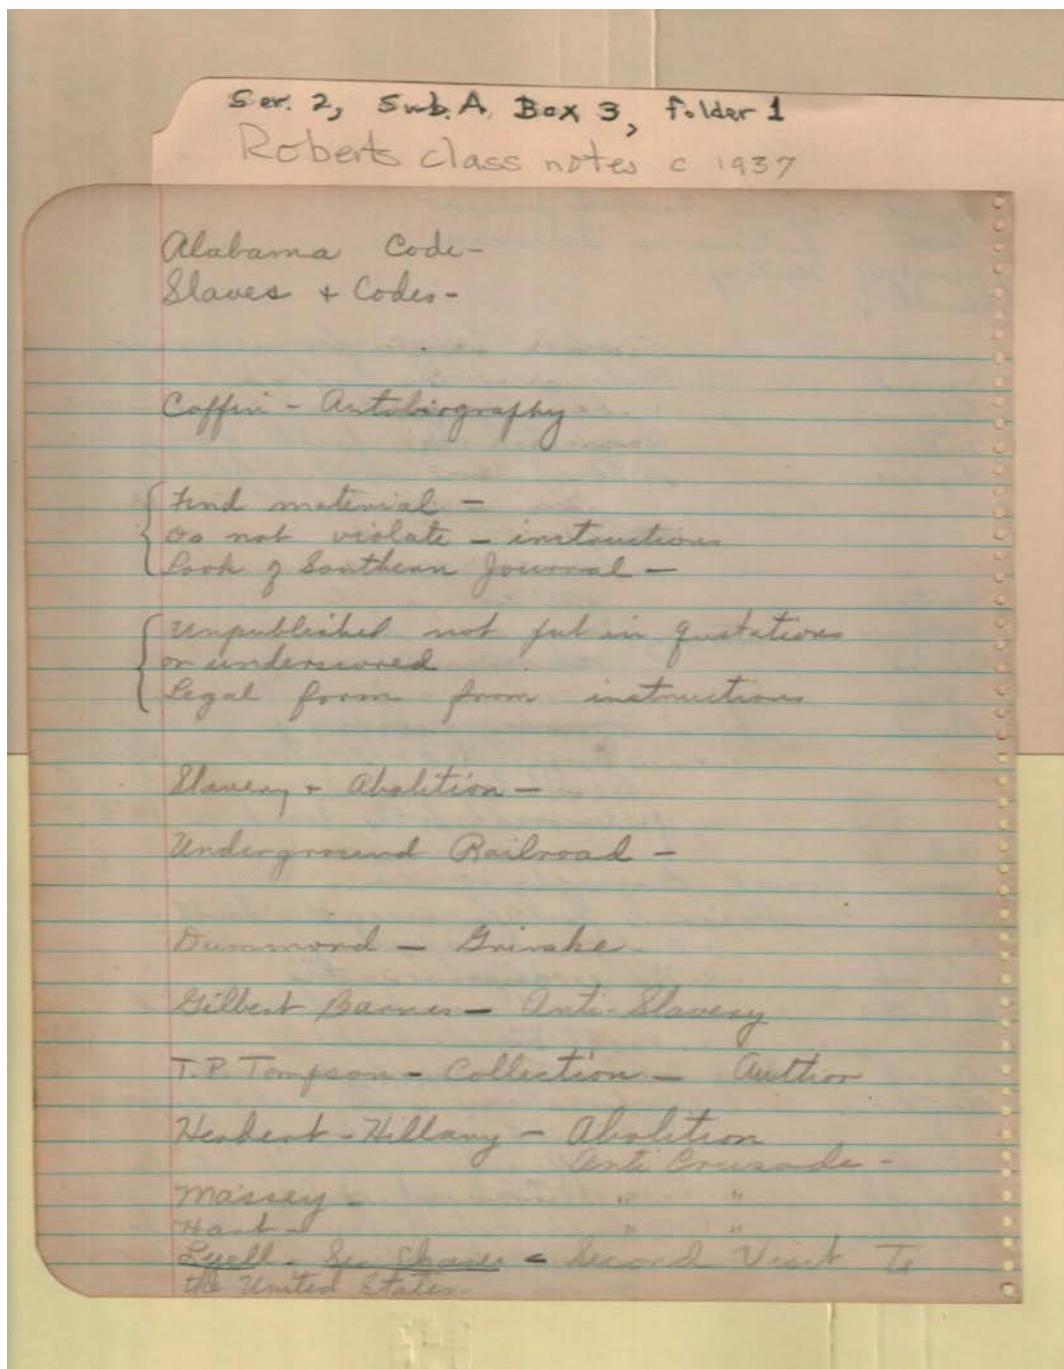 Ser. 2, Sub. A, Box 3, folder 1
Roberts class notes c 1937
Alabama Code -
Slaves + Codes -
Coffin - Autobiography
Find material -
Do not violate - instructions
Look of Southern Journal -
Unpublished not put in quotations
or underscored
Legal form from instructions
Slavery + Abolition -
Underground Railroad -
Dummond - Grimke
Gilbert Barnes - Anti-Slavery
T.P. Tompson - Collection -
Herbert - Hillary - Abolition
Anti Crusade -
Massey - " "
Hart - " "
Lyell - See - Second Visit To
the United States